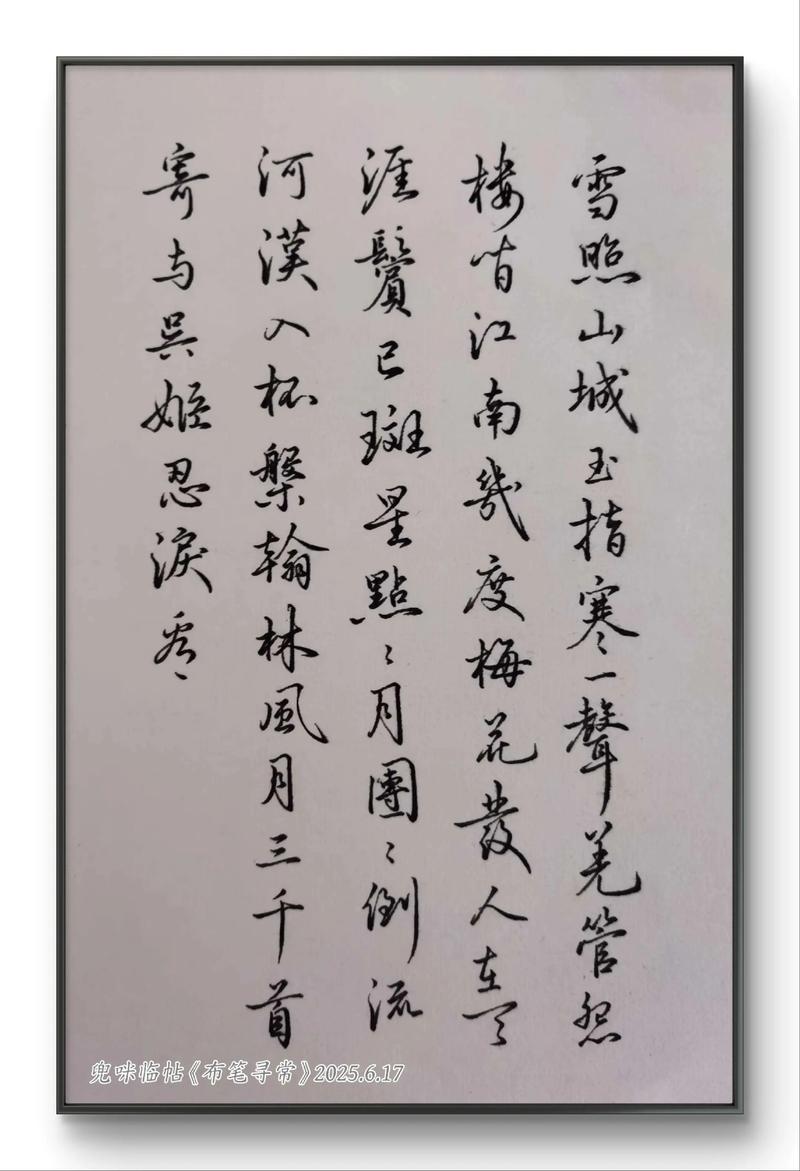 雪照山城玉指寒一聲羌管怨
樓間江南幾度梅花發人在天
涯鬢已斑星點〻月團〻倒流
河漢入杯槃翰林風月三千首
寄与吳姬忍淚看
兜咪临帖《布笔寻常》2025.6.17